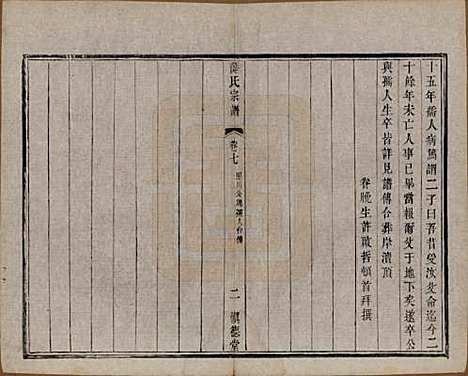 十五年孺人病篤謂二子曰吾昔受汝父命迄今二
十餘年未亡人事已畢當報爾父于地下矣遂卒公
與孺人生卒皆詳見譜傳合葬岸瀆頂
眷晚生許啟哲頓首拜撰
薛氏宗譜
卷七
二
慎德堂